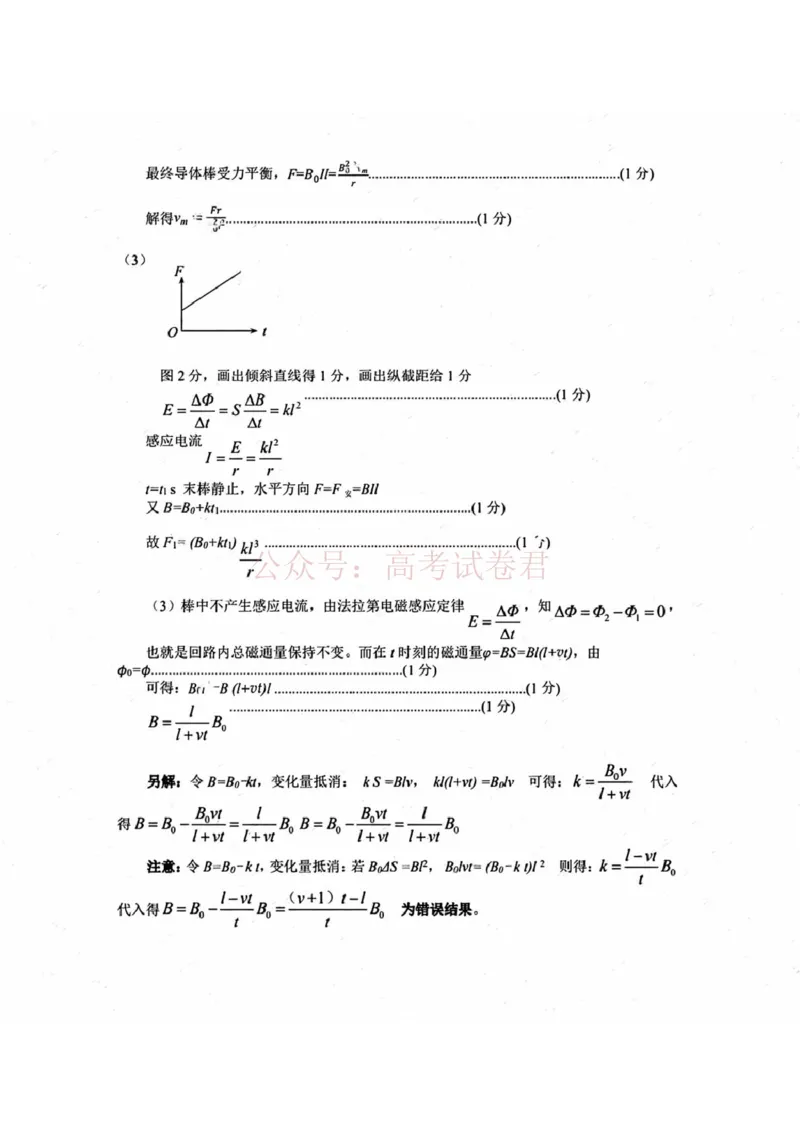 最终导体棒受力平衡，F=B₀Il=B₀² m/r……(1分)
解得vₘ = Fr/……(1分)
（3）
F
O t
图2分，画出倾斜直线得1分，画出纵截距给1分
E=ΔΦ/Δt=SΔB/Δt=kl²……(1分)
感应电流 I=E/r=kl²/r
t=t₁ s 末棒静止，水平方向F=F安=BIl
又B=B₀+kt₁……(1分)
故F₁= (B₀+kt₁) kl³/r……(1
公众号：高考试卷君
（3）棒中不产生感应电流，由法拉第电磁感应定律 E=ΔΦ/Δt，知ΔΦ=Φ₂-Φ₁=0，
也就是回路内总磁通量保持不变。而在t时刻的磁通量φ=BS=Bl(l+vt)，由
ϕ₀=ϕ……(1分)
可得：B =B (l+vt)l……(1分)
B=l/(l+vt) B₀……(1分)
另解：令B=B₀-kt，变化量抵消： kS =Blv， kl(l+vt) =B₀lv 可得：k=B₀v/(l+vt) 代入
得B=B₀-B₀vt/(l+vt)=l/(l+vt) B₀ B=B₀-B₀vt/(l+vt)=l/(l+vt) B₀
注意：令B=B₀-k t，变化量抵消：若B₀ΔS =Bl²， B₀lvt= (B₀-k t)l² 则得：k=(l-vt)/t B₀
代入得B=B₀-(l-vt)/t B₀=(（v+1）t-l)/t B₀ 为错误结果。